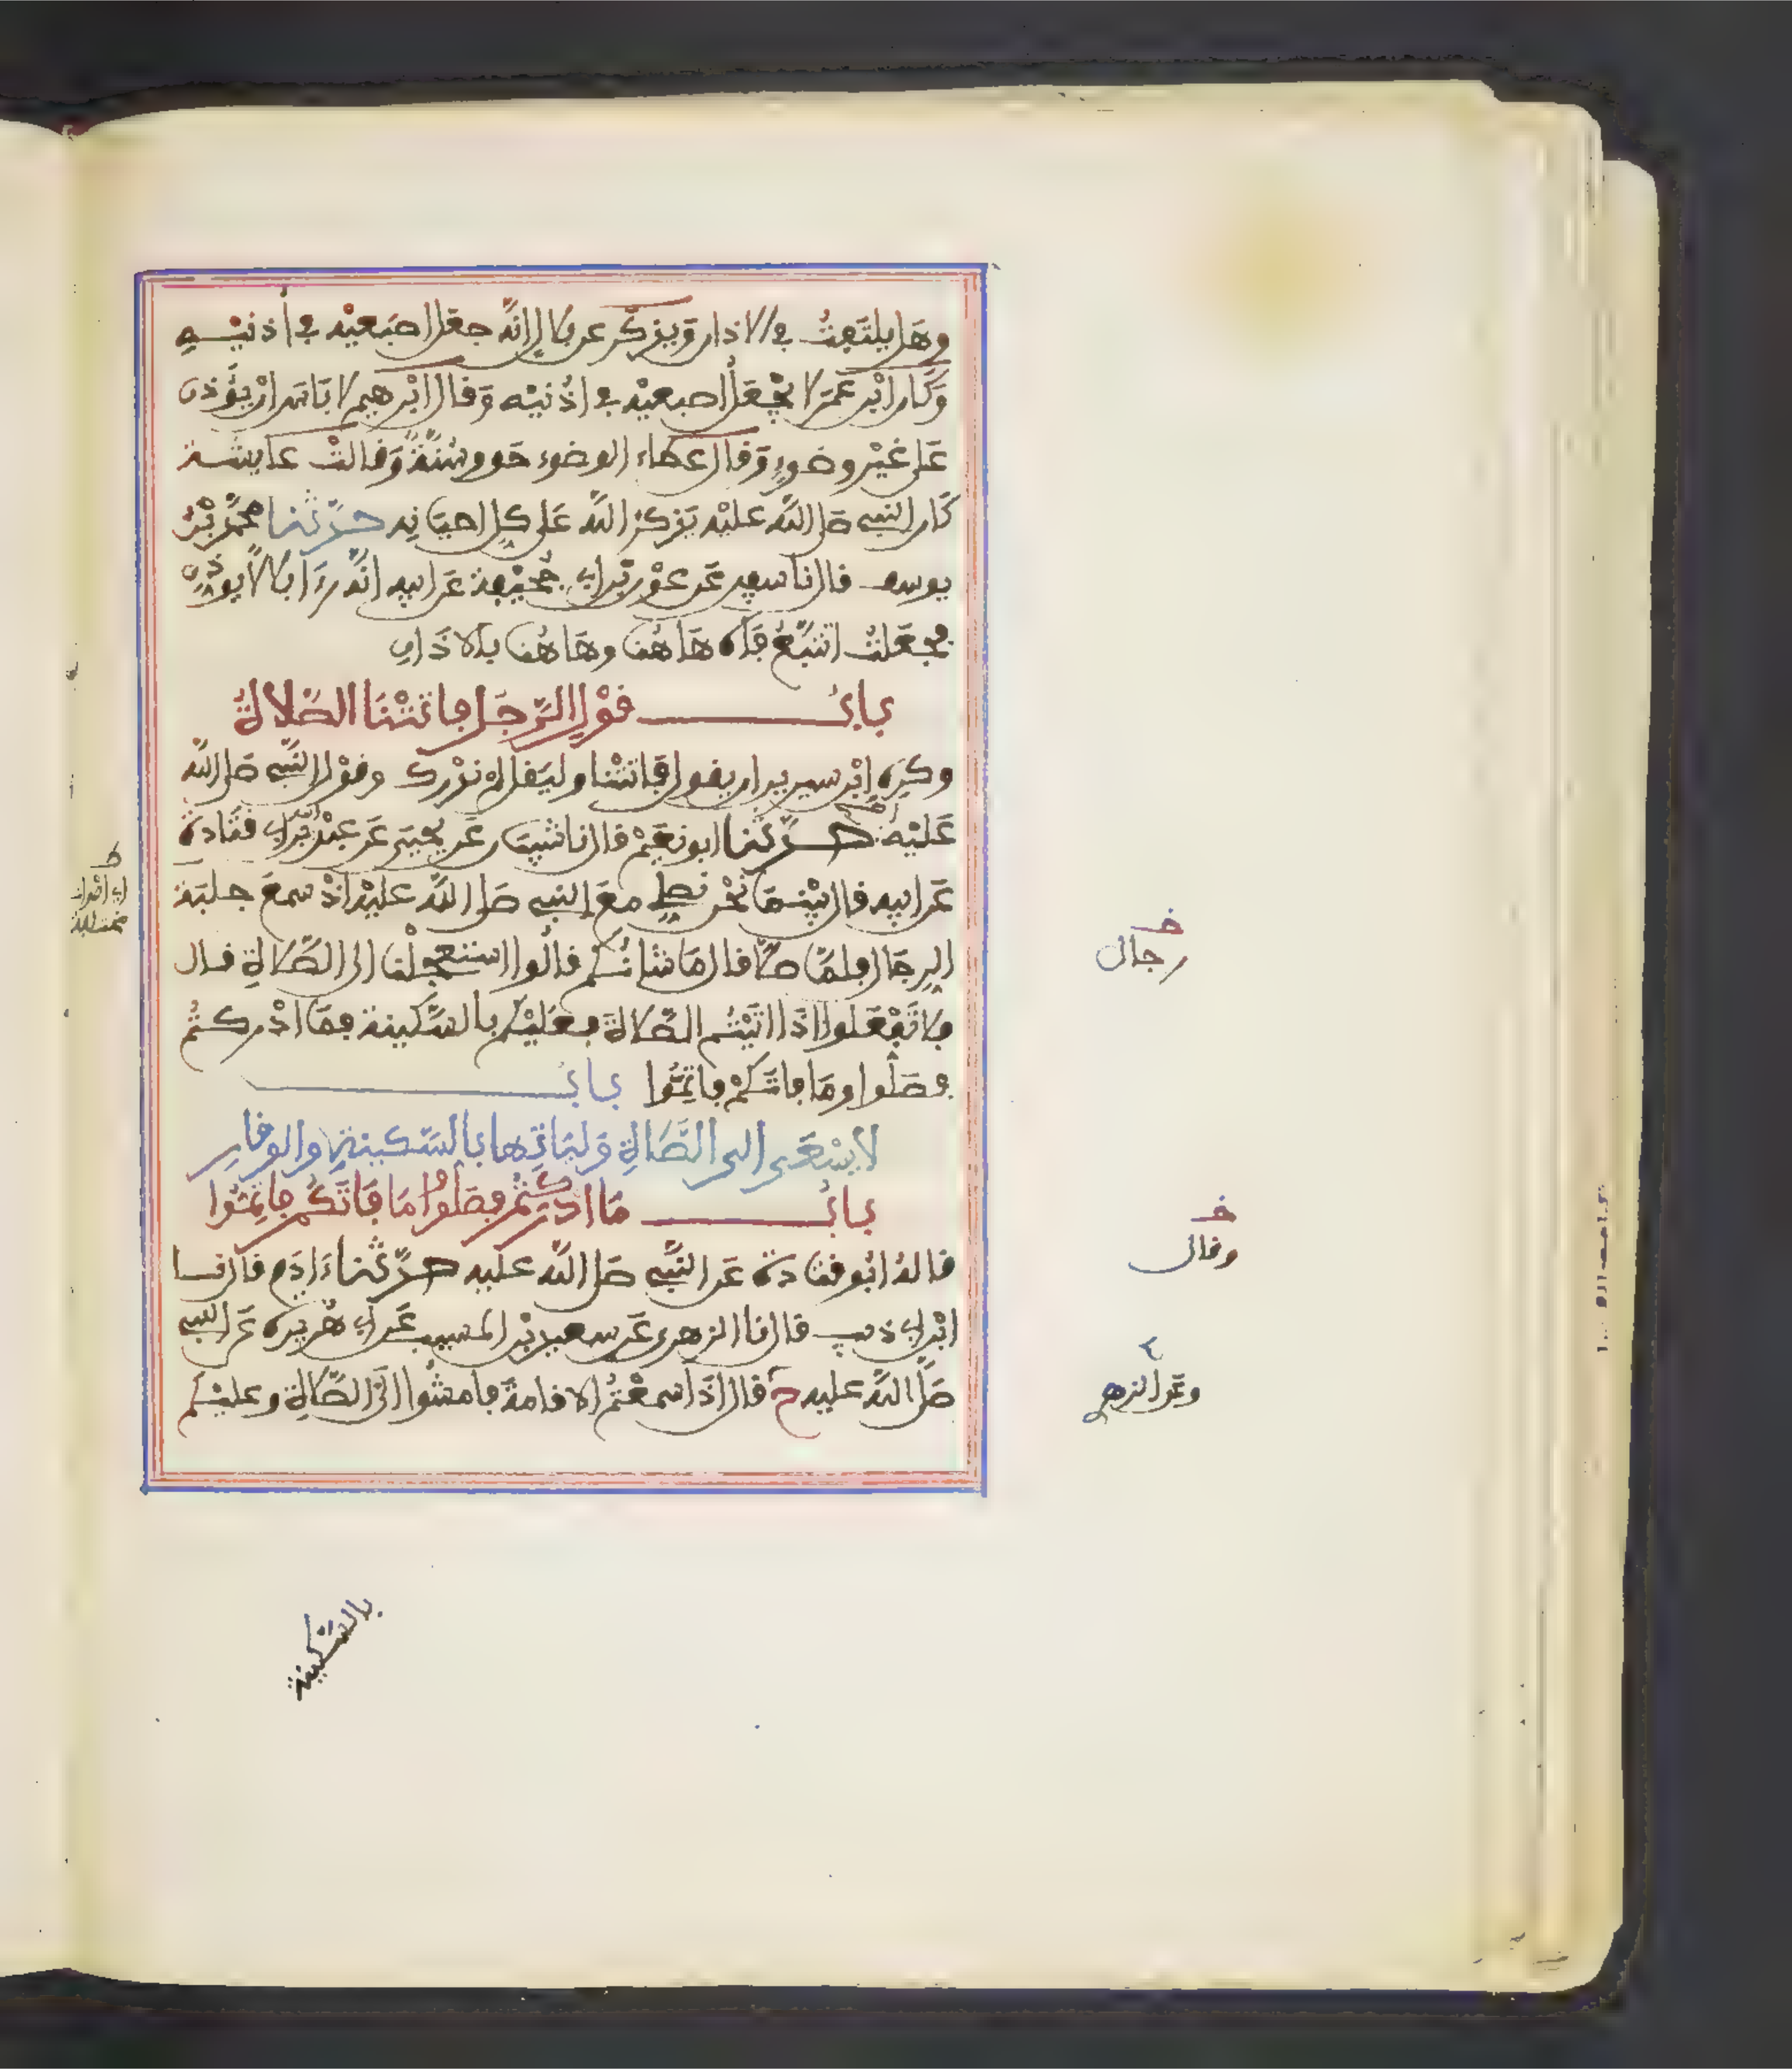 وهل يلتفت في الاذان ويذكر عن بلال انه جعل اصبعيه في أذنيه
وكان ابن عمر لا يجعل اصبعيه في اذنيه وقال ابرهيم لا باس ان يؤذن
على غير وضوء وقال عطاء الوضوء حق وسنة وقالت عايشة
كان النبي صلى الله عليه يذكر الله على كل احيانه حدثنا محمد بن
يوسف قال نا سفين عن عون بن ابي جحيفة عن ابيه انه رءا بلالا يوذن
فجعلت اتتبع فاه هاهنا وهاهنا بالاذان
باب قول الرجل فاتتنا الصلاة
وكره ابن سيرين ان يقول فاتتنا وليقل لم ندرك وقول النبي صلى الله
عليه اصح حدثنا ابو نعيم قال نا شيبان عن يحيى عن عبد الله بن ابي قتادة
عن ابيه قال بينما نحن نصلي مع النبي صلى الله عليه اذ سمع جلبة
الرجال فلما صلى قال ما شانكم قالوا استعجلنا الى الصلاة قال
فلا تفعلوا اذا اتيتم الصلاة فعليكم بالسكينة فما ادركتم
فصلوا وما فاتكم فاتموا باب
لا يسعى الى الصلاة ولياتها بالسكينة والوقار
باب ما ادركتم فصلوا وما فاتكم فاتموا
قاله ابو قتادة عن النبي صلى الله عليه حدثنا ءادم قال نا
ابن ابي ذيب قال نا الزهري عن سعيد بن المسيب عن ابي هريرة عن النبي
صلى الله عليه ح قال اذا سمعتم الاقامة فامشوا الى الصلاة وعليكم
بالسكينة
ط
اي اصوات
مختلفة
خ
رجال
خ
وقال
ع
وعن الزهري